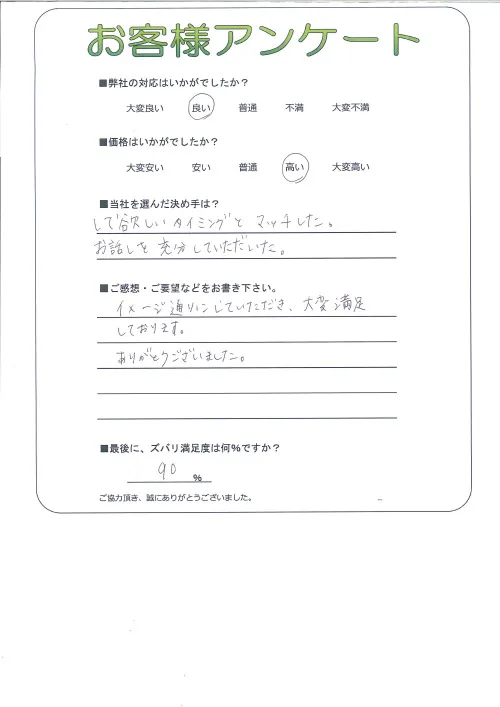 お客様アンケート
■弊社の対応はいかがでしたか？
大変良い　良い　普通　不満　大変不満
■価格はいかがでしたか？
大変安い　安い　普通　高い　大変高い
■当社を選んだ決め手は？
して欲しいタイミングと マッチした。
お話しを 充分していただいた。
■ご感想・ご要望などをお書き下さい。
イメージ通りにしていただき、大変満足
しております。
ありがとうございました。
■最後に、ズバリ満足度は何%ですか？
90 %
ご協力頂き、誠にありがとうございました。